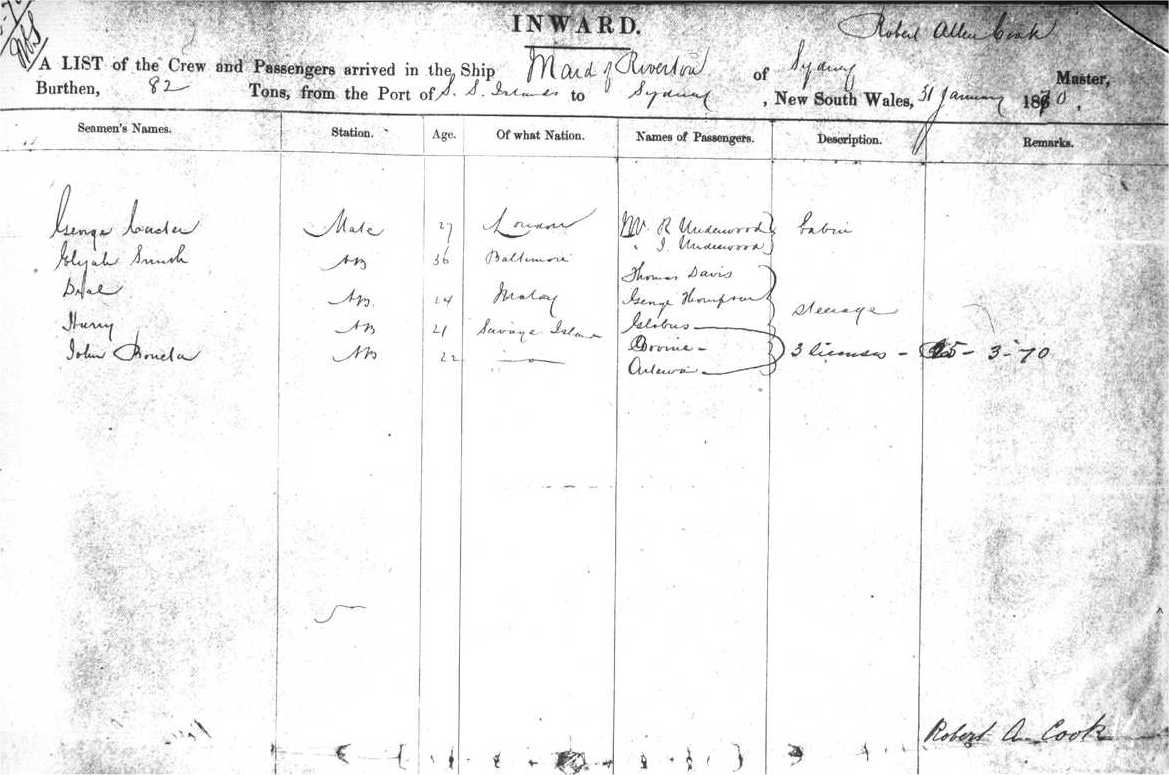 INWARD.
Robert Allen Cook
A LIST of the Crew and Passengers arrived in the Ship Maid of Riverton of Sydney Master,
Burthen, 82 Tons, from the Port of S. S. Islands to Sydney, New South Wales, 31 January 1870.
Seamen's Names. Station. Age. Of what Nation. Names of Passengers. Description. Remarks.
George Mate 27 London Mr R Underwood Cabin
" J. Underwood
Elijah Smith AB 36 Baltimore
Thomas Davis
AB 24 Malay George Thompson Steerage
Harry AB 21 Savage Island Globus
John AB 22 — " — 3 licenses - - 3 - 70
Robert A. Cook